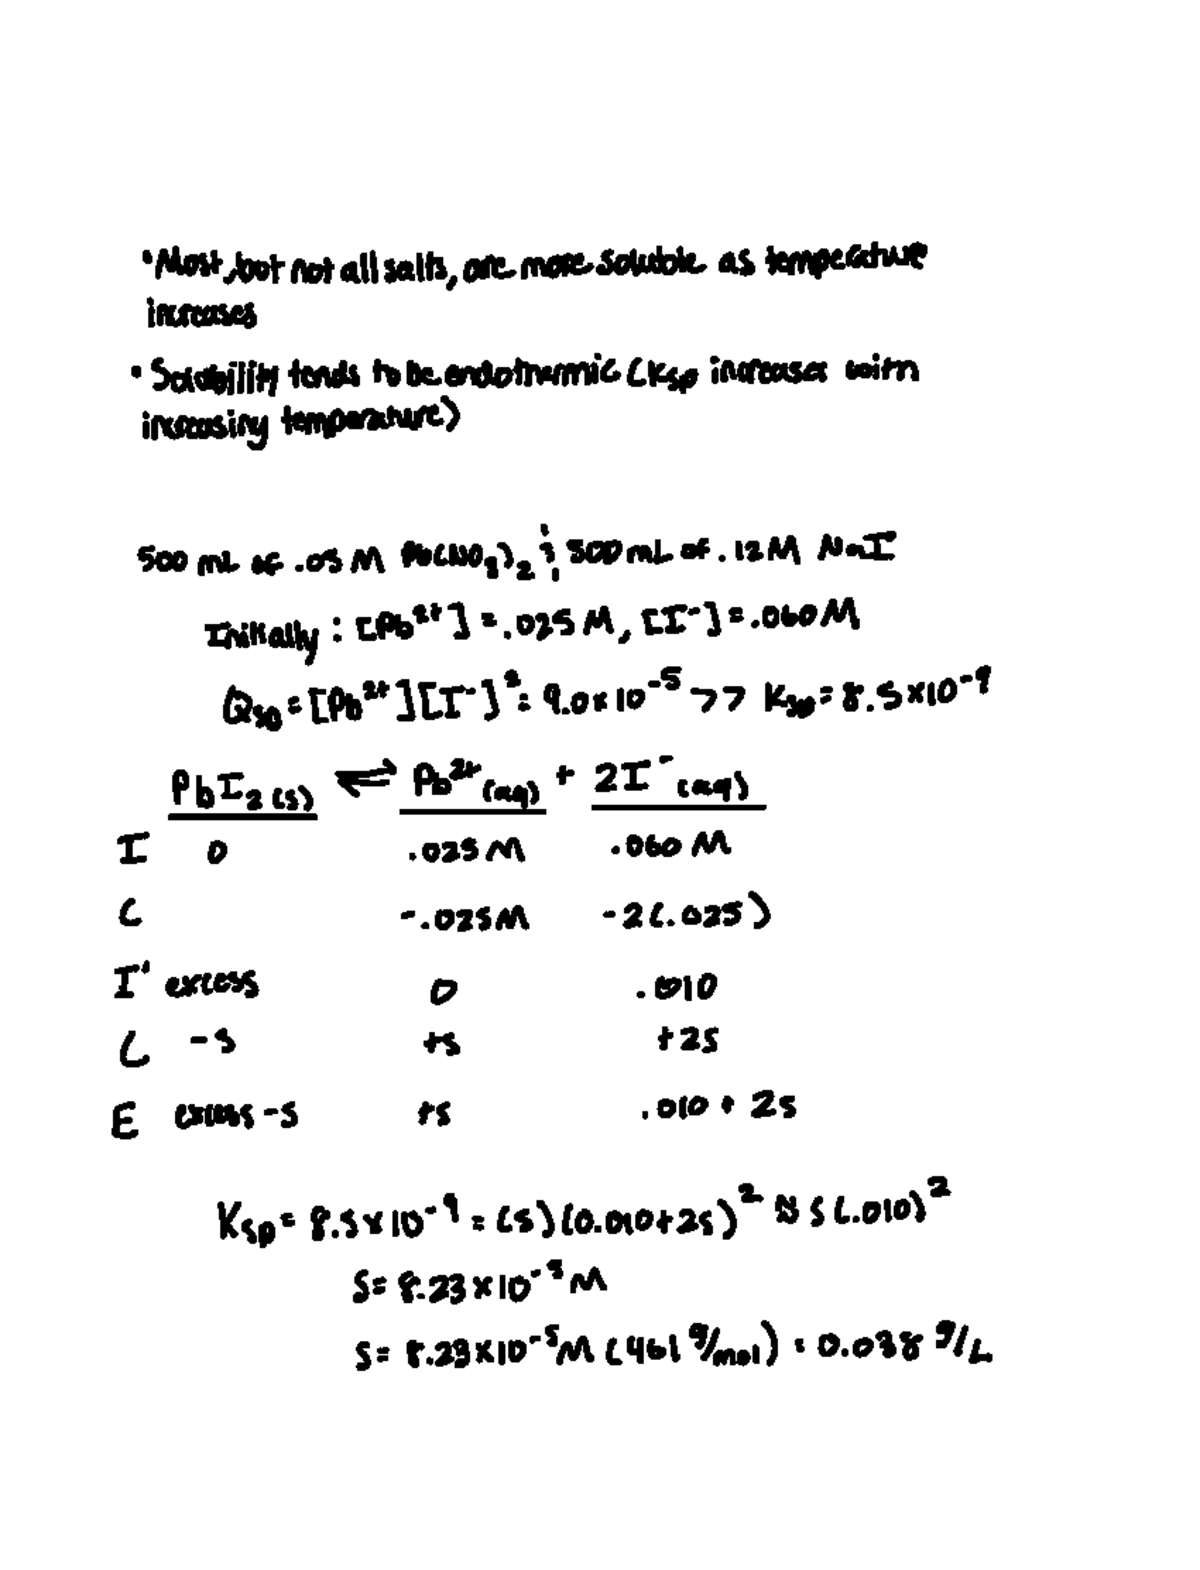 • Most, but not all salts, are more soluble as temperature
increases
• Solubility tends to be endothermic (Ksp increases with
increasing temperature)
500 mL of .05 M Pb(NO₃)₂ & 500 mL of .12 M NaI
Initially: [Pb²⁺] = .025 M, [I⁻] = .060 M
Qsp = [Pb²⁺][I⁻]² = 9.0 x 10⁻⁵ >> Ksp = 8.5 x 10⁻⁹
PbI₂(s) ⇌ Pb²⁺(aq) + 2I⁻(aq)
I 0 .025 M .060 M
C -.025 M -2(.025)
I' excess 0 .010
C -s +s +2s
E excess -s +s .010 + 2s
Ksp = 8.5 x 10⁻⁹ = (s)(0.010+2s)² ≈ s(.010)²
s = 8.23 x 10⁻⁵ M
s = 8.23 x 10⁻⁵ M (461 g/mol) = 0.038 g/L